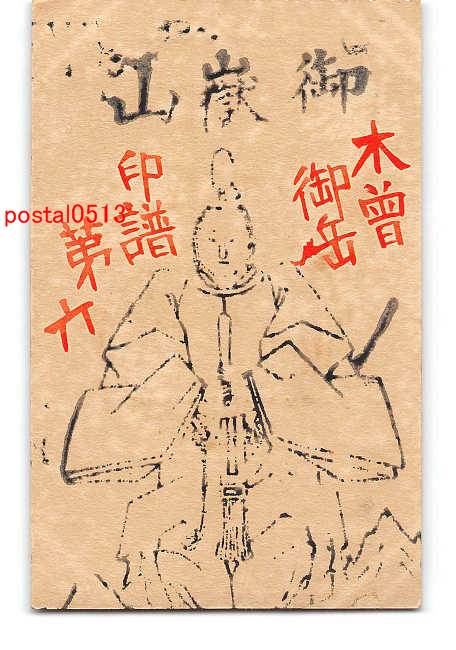 御嶽山
木曾
御岳
印譜
第六
postal0513